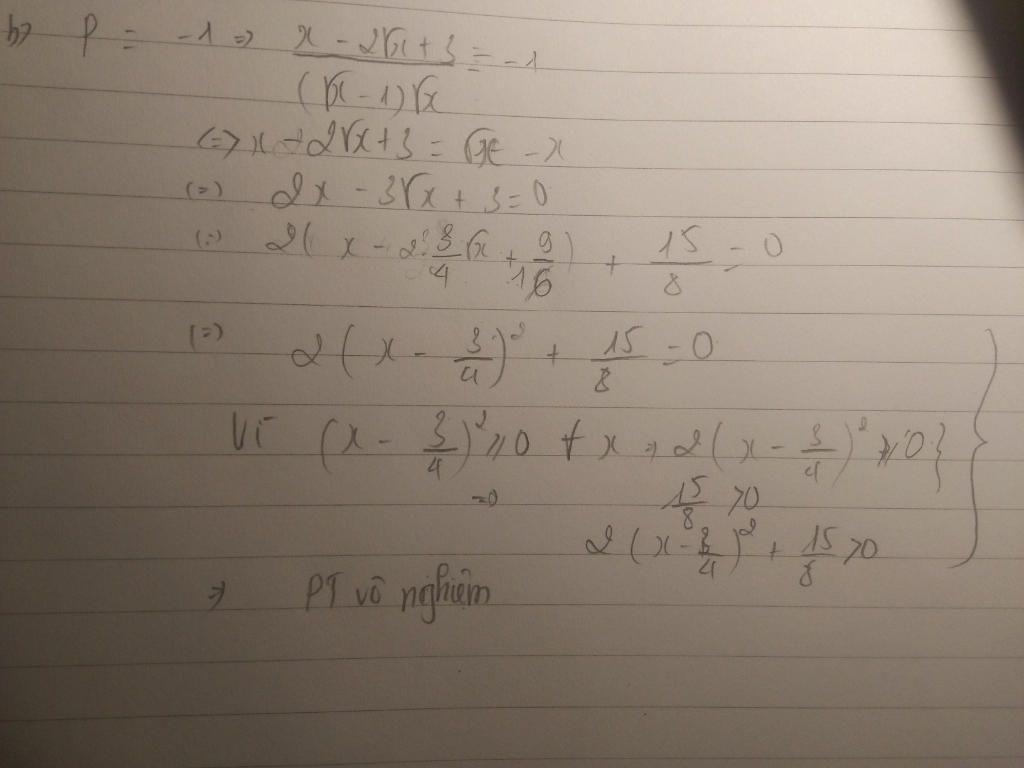 b) P = -1 => (x - 2√x + 3)/((√x - 1)√x) = -1
<=> x - 2√x + 3 = √x - x
(=) 2x - 3√x + 3 = 0
(=) 2(x - 2·3/4 √x + 9/16) + 15/8 = 0
(=) 2(x - 3/4)² + 15/8 = 0 }
Vì (x - 3/4)² ≥ 0 ∀ x => 2(x - 3/4)² ≥ 0 }
=> 15/8 > 0
2(x - 3/4)² + 15/8 > 0
=> PT vô nghiệm